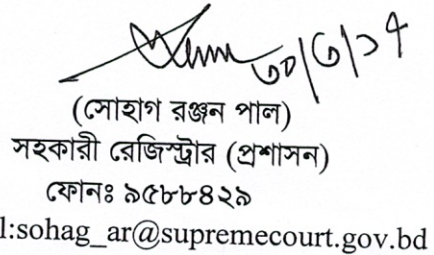 ৩০/৫/১৭
(সোহাগ রঞ্জন পাল)
সহকারী রেজিস্ট্রার (প্রশাসন)
ফোনঃ ৯৫৮৮৪২৯
l:sohag_ar@supremecourt.gov.bd